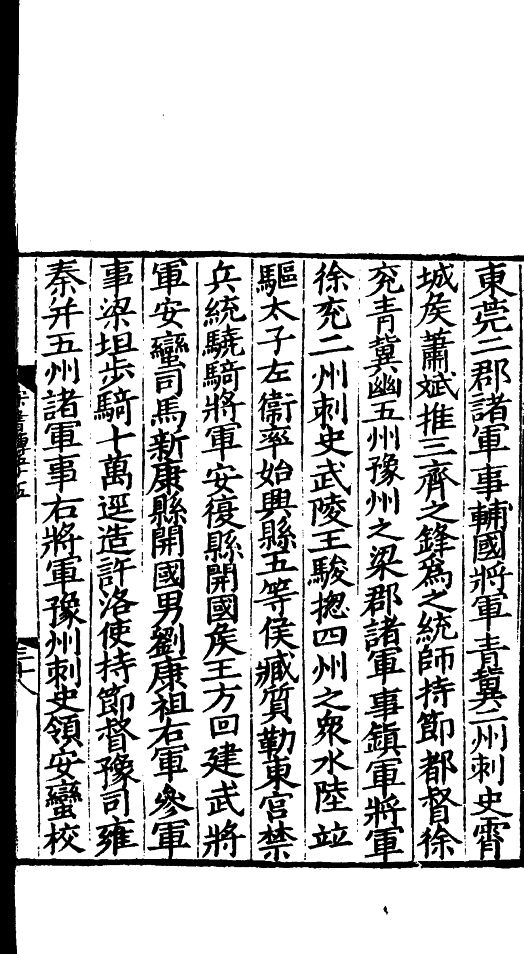 東莞二郡諸軍事輔國將軍青冀二州刺史霄
城矦蕭斌推三齊之鋒爲之統師持節都督徐
兗青冀幽五州豫州之梁郡諸軍事鎮軍將軍
徐兗二州刺史武陵王駿揔四州之衆水陸竝
驅太子左衞率始興縣五等侯臧質勒東宮禁
兵統驍騎將軍安復縣開國矦王方回建武將
軍安蠻司馬新康縣開國男劉康祖右軍參軍
事梁坦步騎十萬逕造許洛使持節督豫司雍
秦并五州諸軍事右將軍豫州刺史領安蠻校